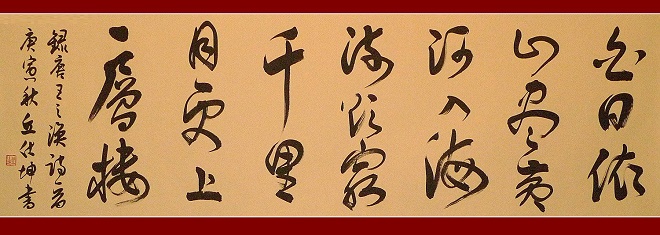 白日依
山盡黃
河入海
流欲窮
千里
目更上
一層樓
録唐王之渙詩一首
庚寅秋丘仕坤書